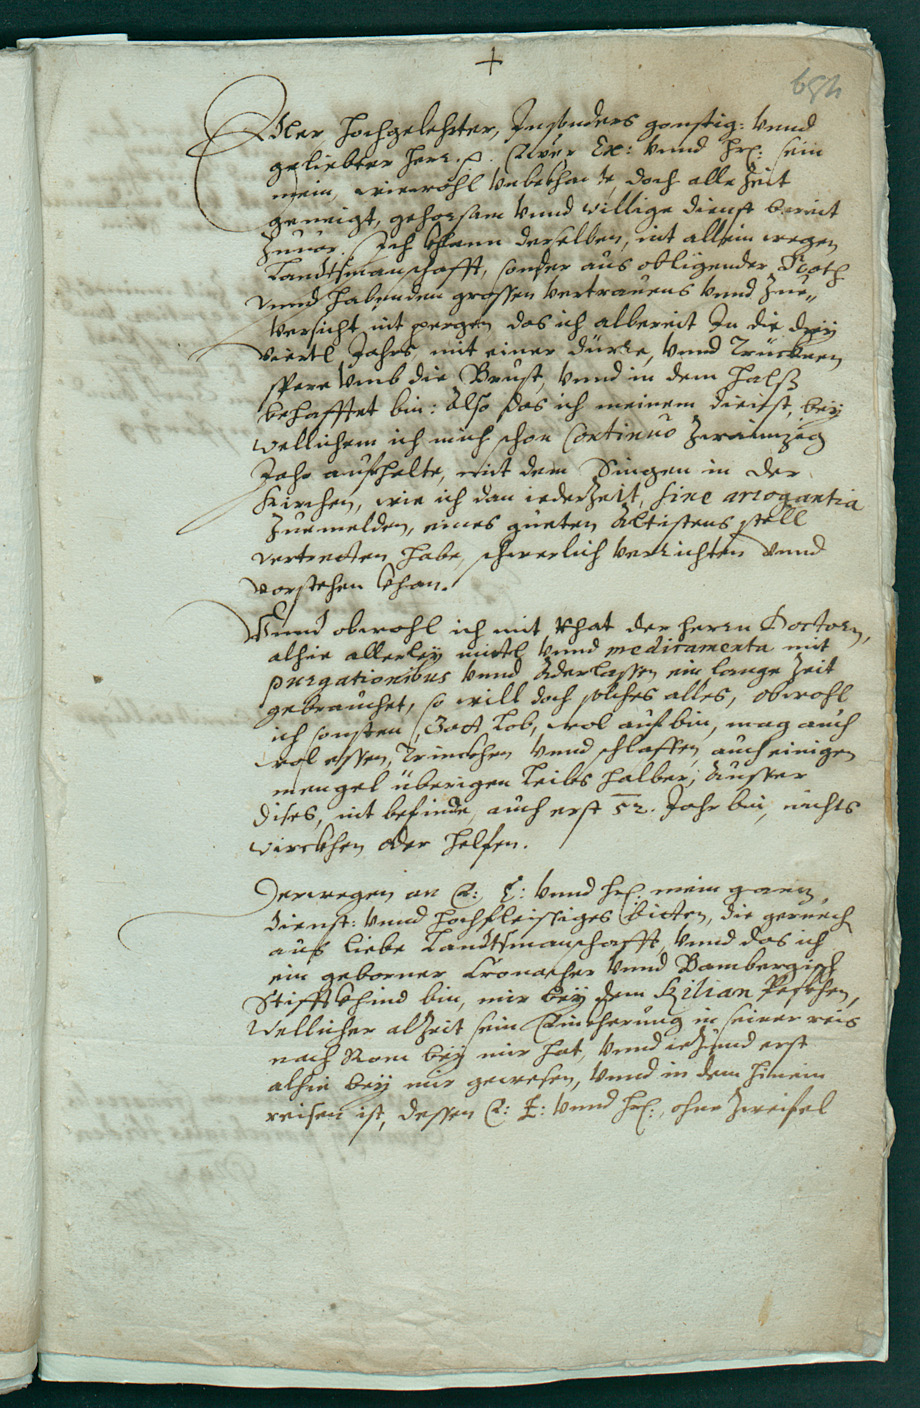 +
Edler Hochgelehrter, Insonders gonstig: vnnd
geliebter Herr. p. Euer Ex: vnnd Hrl: sein
mein, wiewohl vnbekhante, doch alle Zeit
geneigt, gehorsam vnnd willige dienst bereit
Zuuor. Ich khann derselben, nit allein wegen
Landtsmanschafft, sonder aus obligender Noth
vnnd habenden grossen Vertrauens vnnd Zue„
versicht nit pergen das ich albereit In die drey
viertl Jahrs mit einer dürre, vnnd Trückhnen
spere vmb die Brust, vnnd in dem Halß
behafftet bin: Also das ich meinem dienst, bey
wellichem ich mich schon Continuò Zwainzig
Jahr aufhalte, mit dem Singen in der
Kirchen, wie ich dan iederZeit, sine arrogantia
Zuemelden, eines gueten Altistens stell
vertretten habe, schwerlich verrichten vnnd
vorstehen khan.
Vnnd obwohl ich mit Rhat der Herrn Doctorn,
alhie allerley mitl vnnd medicamenta mit
purgationibus vnnd Aderlassen ein lange Zeit
gebrauchet, so will doch solches alles, obwohl
ich sonsten, Gott Lob, wol auf bin, mag auch
wol essen, Trinckhen vnnd schlaffen, auch einigen
mengel überigen Leibs halber, ausser
dises, nit befinde, auch erst 52. Jahr bin, nichts
wirckhen oder helfen.
Derwegen an E: E: vnnd Hrl: mein ganz
dienst: vnnd hochfleissiges bitten, die geruech
aus Liebe Landtsmanschafft, vnnd das ich
ein geborner Cronacher vnnd Bambergisch
Stifftkhind bin, mir bey dem Kilian
Wellicher alZeit sein Einkherung in seiner reis
nach Rom bey mir hat, vnnd ieZund erst
alhie bey mir gewesen, vnnd in dem hinein
reisen ist, dessen E: E: vnnd Hrl: ohne Zweifel